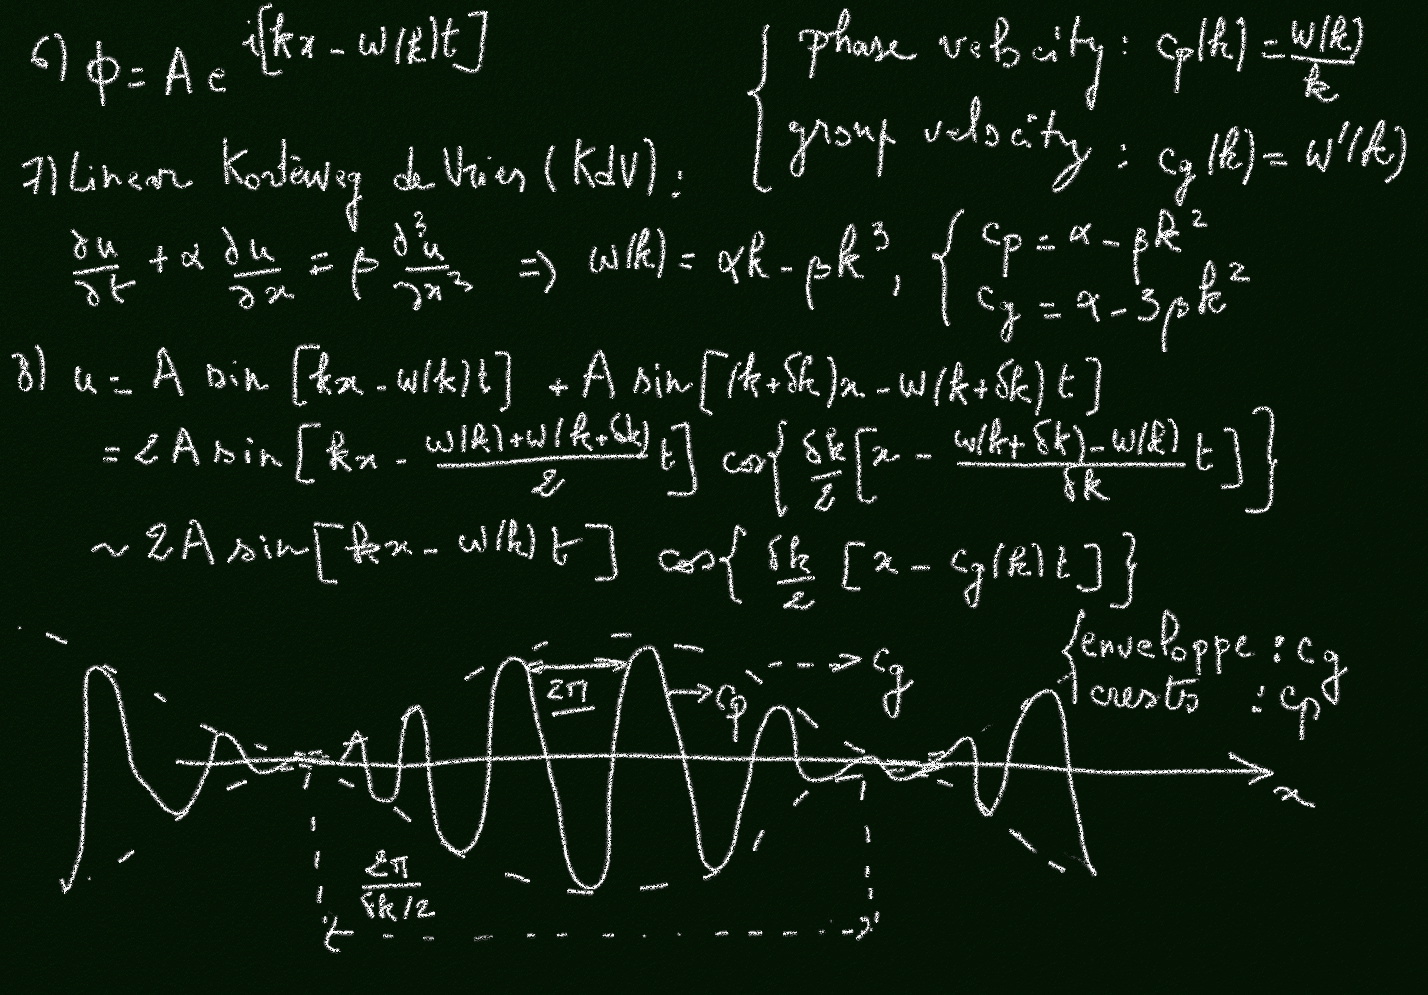 6) ϕ = A e^{i[kx - ω(k)t]}
{ phase velocity : c_p(k) = ω(k)/k
group velocity : c_g(k) = ω'(k)
7) Linear Korteweg de Vries (KdV) :
∂u/∂t + α ∂u/∂x = β ∂³u/∂x³ ⇒ ω(k) = αk - βk³, { c_p = α - βk²
c_g = α - 3βk²
8) u = A sin [kx - ω(k)t] + A sin [(k+δk)x - ω(k+δk)t]
= 2A sin [kx - (ω(k)+ω(k+δk))/2 t] cos{ δk/2 [x - (ω(k+δk)-ω(k))/δk t] }
~ 2A sin [kx - ω(k)t] cos{ δk/2 [x - c_g(k)t] }
{ enveloppe : c_g
crests : c_p
c_g
2π
c_p
x
2π/(δk/2)